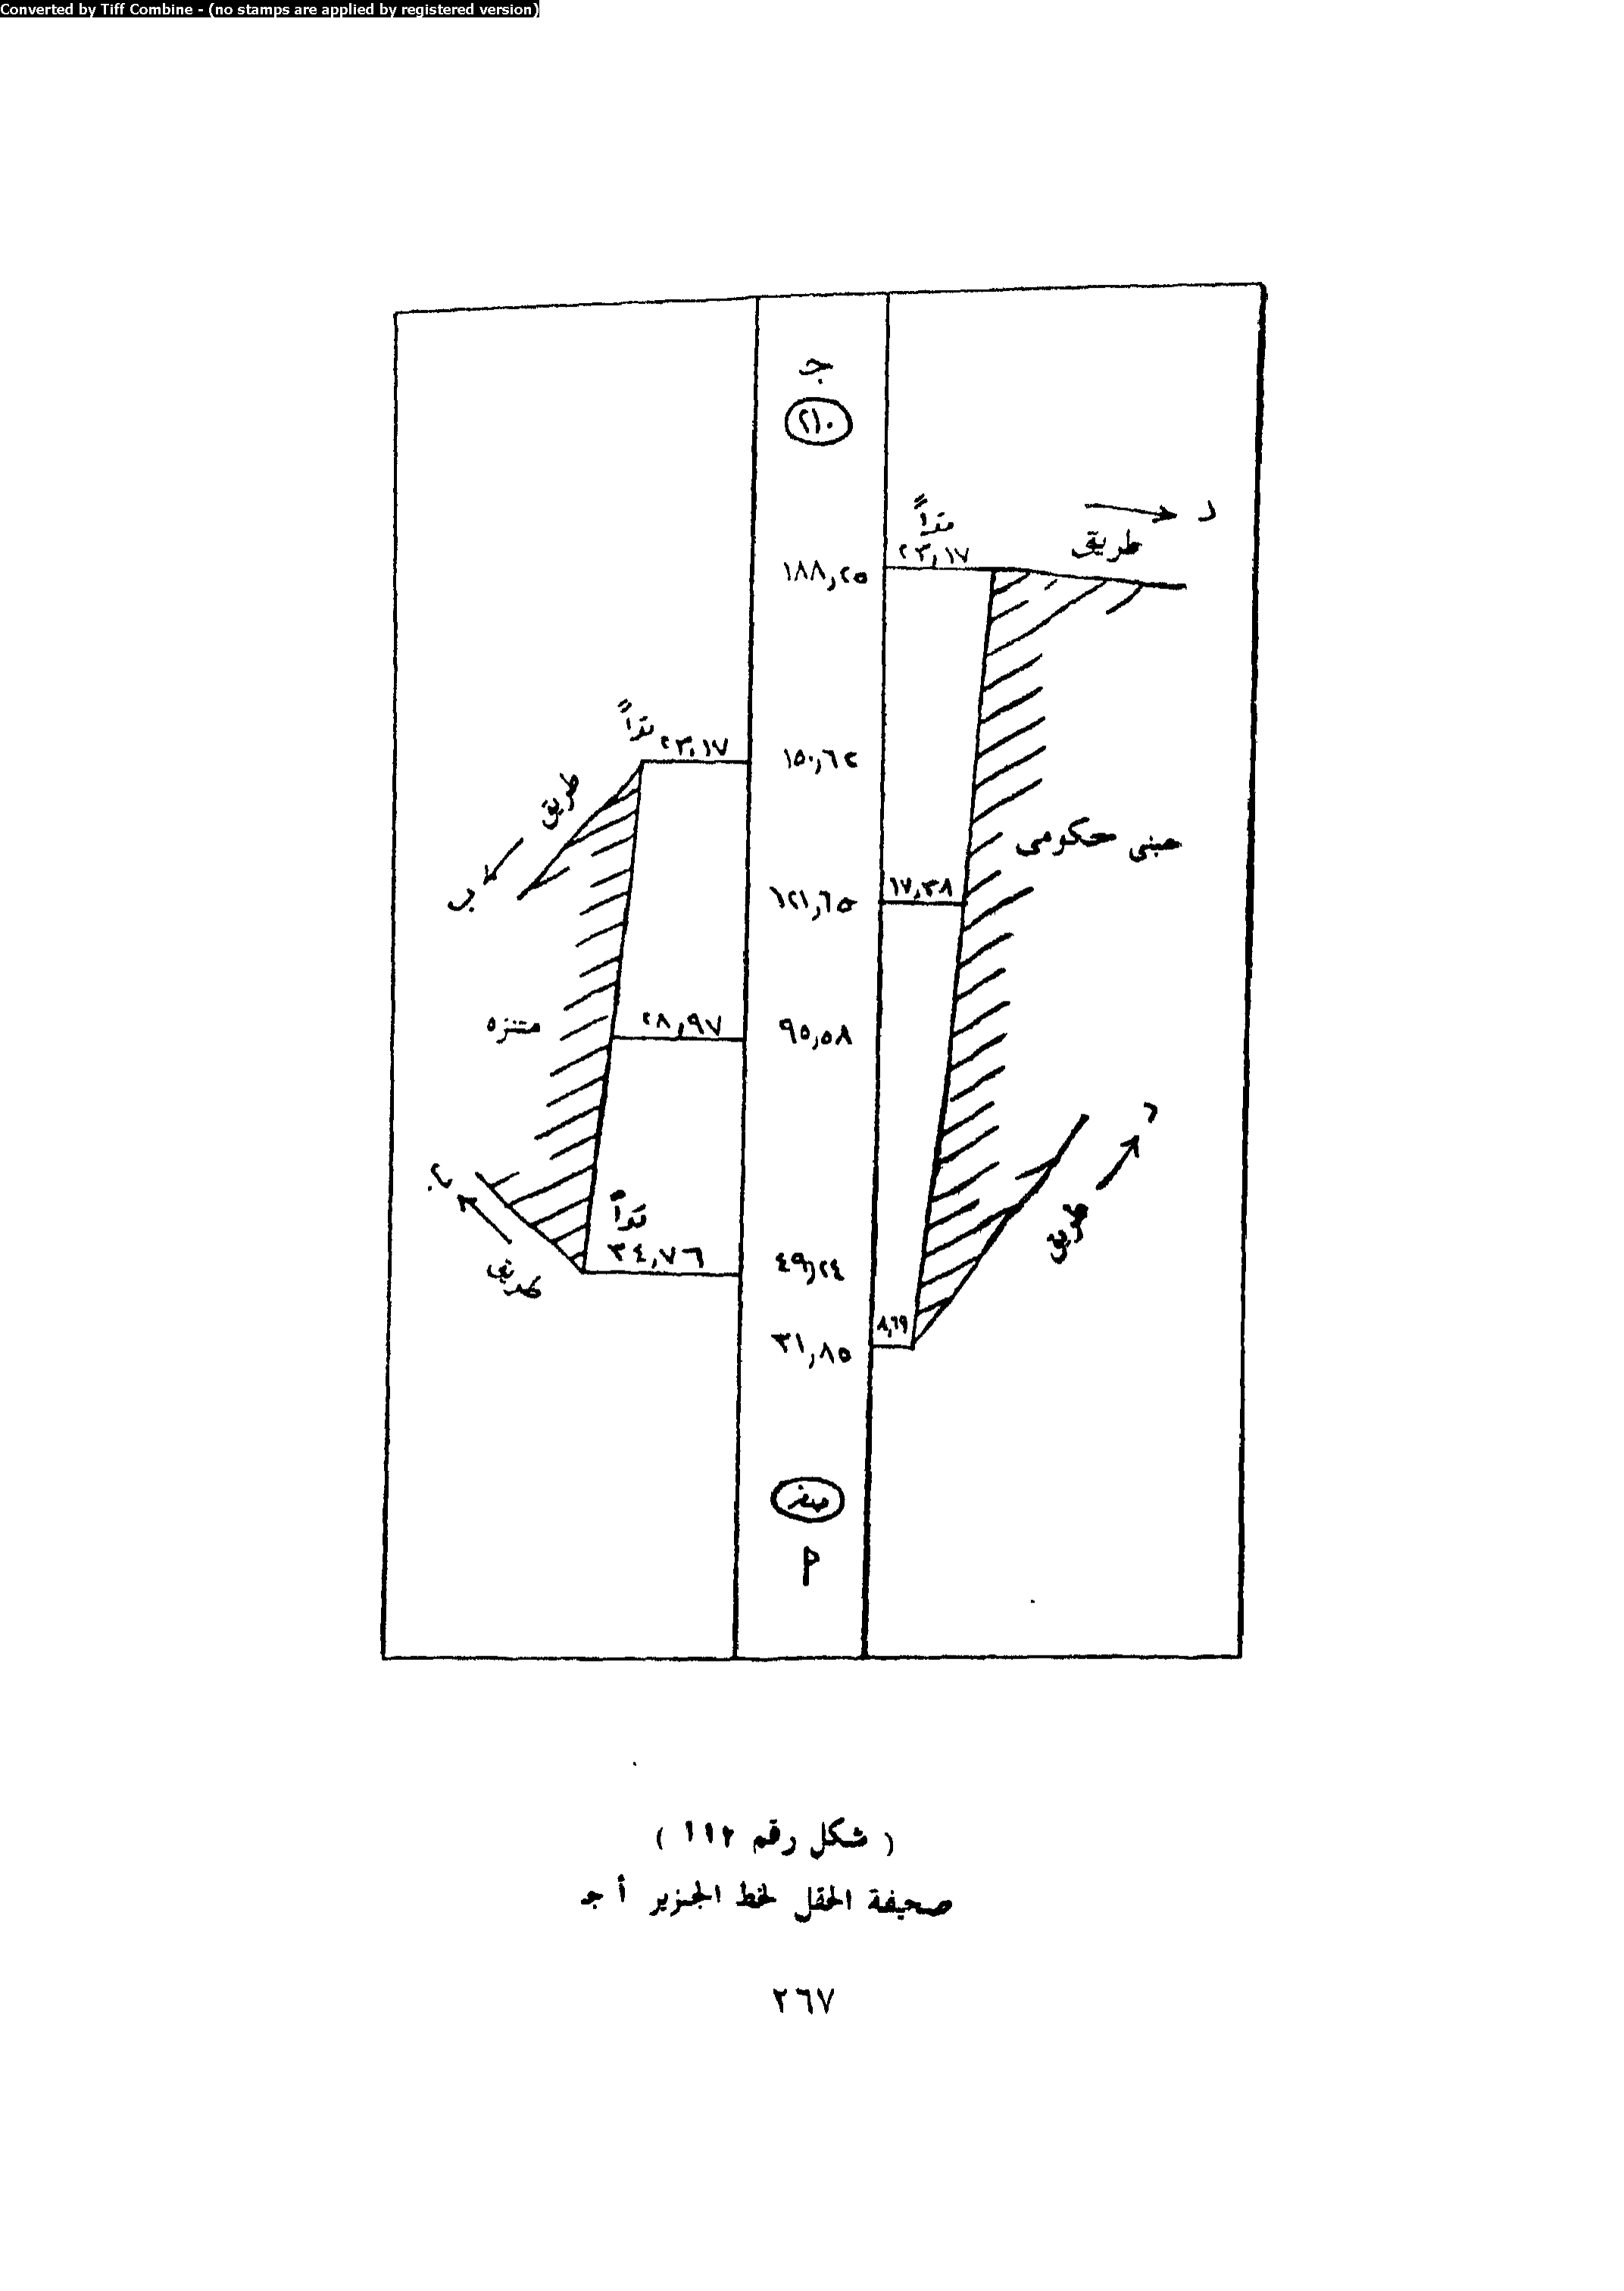 Converted by Tiff Combine - (no stamps are applied by registered version)
جـ
٢١٠
د
طريق
متراً
٢٣,١٧
١٨٨,٢٥
متراً
٢٣,١٧
١٥٠,٦٢
طريق
ب
مبنى حكومى
١٧,٣٨
١٢١,٦٥
متنزه
٢٨,٩٧
٩٥,٥٨
طريق
متراً
٣٤,٧٦
٤٩,٢٤
طريق
٨,٦٩
٣١,٨٥
صفر
أ
( شكل رقم ١١٢ )
صحيفة الحقل لخط الجنزير أ جـ
٢٦٧